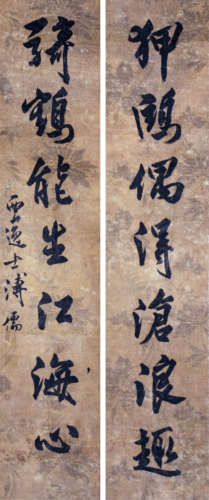 狎鷗偶得滄浪趣
騎鶴能生江海心
西山逸士溥儒